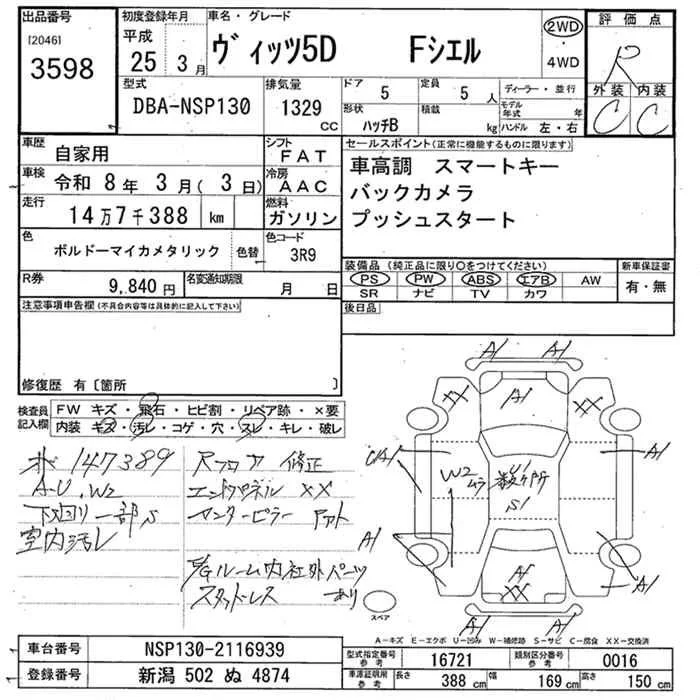 出品番号
[2046]
3598
初度登録年月
平成
25 3月
車名・グレード
ヴィッツ5D Fシエル
2WD
4WD
評価点
R
外装 内装
C C
型式
DBA-NSP130
排気量
1329
CC
ドア
5
定員
5 人
形状
ハッチB
積載
kg
ディーラー・並行
モデル年式 年
ハンドル 左・右
車歴
自家用
シフト
FAT
車検
令和 8年 3月( 3日)
冷房
AAC
走行
14万7千388 km
燃料
ガソリン
色
ボルドーマイカメタリック
色替
色コード
3R9
R券
9,840円
名変通知期限
月 日
セールスポイント(正常に機能するものに限ります)
車高調 スマートキー
バックカメラ
プッシュスタート
装備品(純正品に限り○をつけてください)
PS PW ABS エアB AW
SR ナビ TV カワ
新車保証書
有・無
後日品
注意事項申告欄(不具合内容等は具体的に記入して下さい)
修復歴 有〔箇所 〕
検査員記入欄
FW キズ・飛石・ヒビ割・リペア跡・×要
内装 キズ・汚レ・コゲ・穴・スレ・キレ・破レ
147389
A・U、W2
下回り一部S
室内汚レ
Rフロア 修正
エンドパネル XX
センターピラー
E/Gルーム内社外パーツ
スタッドレス あり
A1 A1
XX A1 XX
A1
W2
ムラ
数ヶ所
S1
A1
A1
XX
A1
A1 A1
スペア
A-キズ E-エクボ U-凹み W-補修跡 S-サビ C-腐食 XX-交換済
車台番号
NSP130-2116939
登録番号
新潟 502 ぬ 4874
型式指定番号
参考
16721
類別区分番号
参考
0016
車庫証明用
参考
長さ
388 cm
幅
169 cm
高さ
150 cm